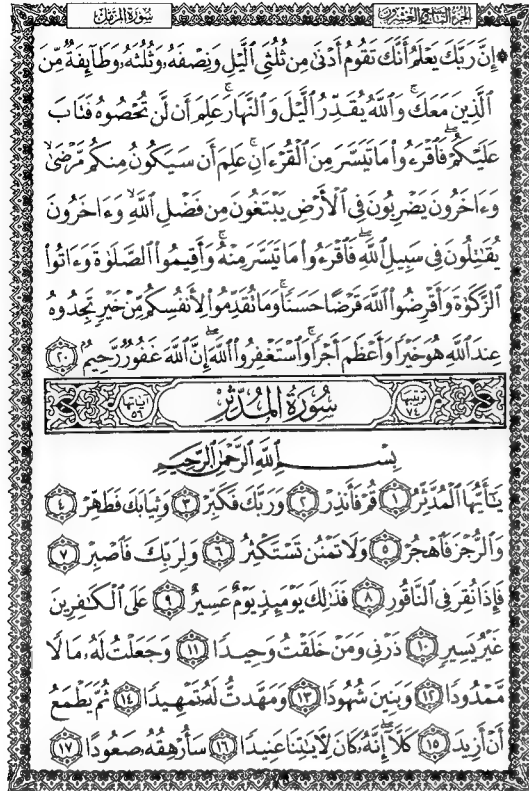 الجزء التاسع والعشرون
سورة المزمل
۞ إِنَّ رَبَّكَ يَعْلَمُ أَنَّكَ تَقُومُ أَدْنَىٰ مِن ثُلُثَيِ ٱلَّيْلِ وَنِصْفَهُۥ وَثُلُثَهُۥ وَطَآئِفَةٌ مِّنَ
ٱلَّذِينَ مَعَكَ ۚ وَٱللَّهُ يُقَدِّرُ ٱلَّيْلَ وَٱلنَّهَارَ ۚ عَلِمَ أَن لَّن تُحْصُوهُ فَتَابَ
عَلَيْكُمْ ۖ فَٱقْرَءُوا۟ مَا تَيَسَّرَ مِنَ ٱلْقُرْءَانِ ۚ عَلِمَ أَن سَيَكُونُ مِنكُم مَّرْضَىٰ ۙ
وَءَاخَرُونَ يَضْرِبُونَ فِى ٱلْأَرْضِ يَبْتَغُونَ مِن فَضْلِ ٱللَّهِ ۙ وَءَاخَرُونَ
يُقَـٰتِلُونَ فِى سَبِيلِ ٱللَّهِ ۖ فَٱقْرَءُوا۟ مَا تَيَسَّرَ مِنْهُ ۚ وَأَقِيمُوا۟ ٱلصَّلَوٰةَ وَءَاتُوا۟
ٱلزَّكَوٰةَ وَأَقْرِضُوا۟ ٱللَّهَ قَرْضًا حَسَنًا ۚ وَمَا تُقَدِّمُوا۟ لِأَنفُسِكُم مِّنْ خَيْرٍ تَجِدُوهُ
عِندَ ٱللَّهِ هُوَ خَيْرًا وَأَعْظَمَ أَجْرًا ۚ وَٱسْتَغْفِرُوا۟ ٱللَّهَ ۖ إِنَّ ٱللَّهَ غَفُورٌ رَّحِيمٌ ٢٠
ترتيبها ٧٤ سُورَةُ المُدَّثِّرِ آياتها ٥٦
بِسْمِ ٱللَّهِ ٱلرَّحْمَـٰنِ ٱلرَّحِيمِ
يَـٰٓأَيُّهَا ٱلْمُدَّثِّرُ ١ قُمْ فَأَنذِرْ ٢ وَرَبَّكَ فَكَبِّرْ ٣ وَثِيَابَكَ فَطَهِّرْ ٤
وَٱلرُّجْزَ فَٱهْجُرْ ٥ وَلَا تَمْنُن تَسْتَكْثِرُ ٦ وَلِرَبِّكَ فَٱصْبِرْ ٧
فَإِذَا نُقِرَ فِى ٱلنَّاقُورِ ٨ فَذَٰلِكَ يَوْمَئِذٍ يَوْمٌ عَسِيرٌ ٩ عَلَى ٱلْكَـٰفِرِينَ
غَيْرُ يَسِيرٍ ١٠ ذَرْنِى وَمَنْ خَلَقْتُ وَحِيدًا ١١ وَجَعَلْتُ لَهُۥ مَالًا
مَّمْدُودًا ١٢ وَبَنِينَ شُهُودًا ١٣ وَمَهَّدتُّ لَهُۥ تَمْهِيدًا ١٤ ثُمَّ يَطْمَعُ
أَنْ أَزِيدَ ١٥ كَلَّآ ۖ إِنَّهُۥ كَانَ لِـَٔايَـٰتِنَا عَنِيدًا ١٦ سَأُرْهِقُهُۥ صَعُودًا ١٧